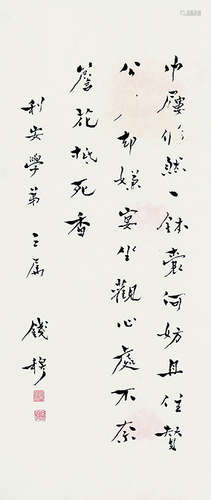 巾屨翛然一鉢囊何妨且住贊
公却嫌宴坐觀心處不奈
簷花抵死香
利安學弟 正屬 錢穆